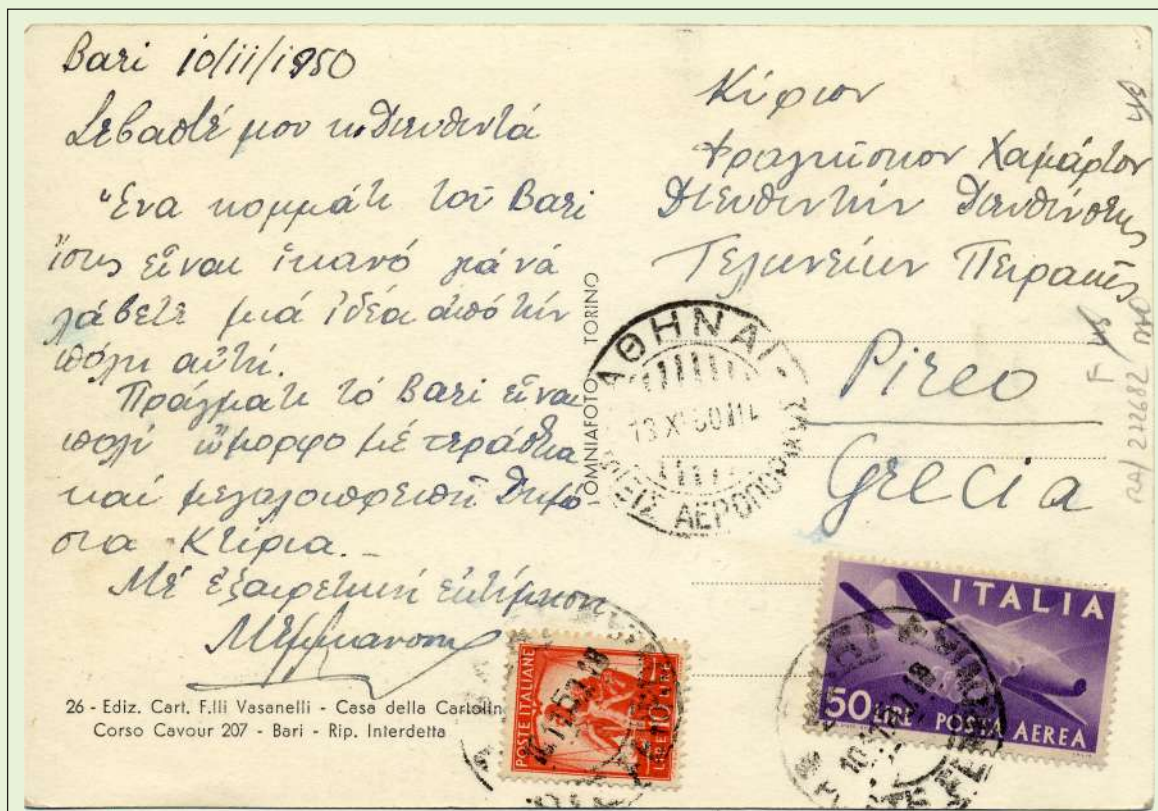 Bari 10/11/1950
Σεβαστέ μου κ. Διευθυντά
Ἕνα κομμάτι τοῦ Bari
ἴσως εἶναι ἱκανό γιά νά
λάβετε μιά ἰδέα ἀπό τήν
πόλη αὐτή.
Πράγματι τό Bari εἶναι
πολύ ὤμορφο μέ τεράστια
καί μεγαλοπρεπῆ Δημό
σια κτίρια.-
Μέ ἐξαιρετική ἐκτίμηση
26 - Ediz. Cart. F.lli Vasanelli - Casa della Cartolin
Corso Cavour 207 - Bari - Rip. Interdetta
OMNIAFOTO TORINO
Κύριον
Φραγκίσκον Χαμάρτον
Διευθυντήν Διευθύνσεως
Τελωνείων Πειραιῶς
Pireo
Grecia
ΑΘΗΝΑΙ
ΑΦΙΞΙΣ ΑΕΡΟΠΟΡΙΚΩΣ
POSTE ITALIANE
LIRE 10
ITALIA
50 LIRE POSTA AEREA